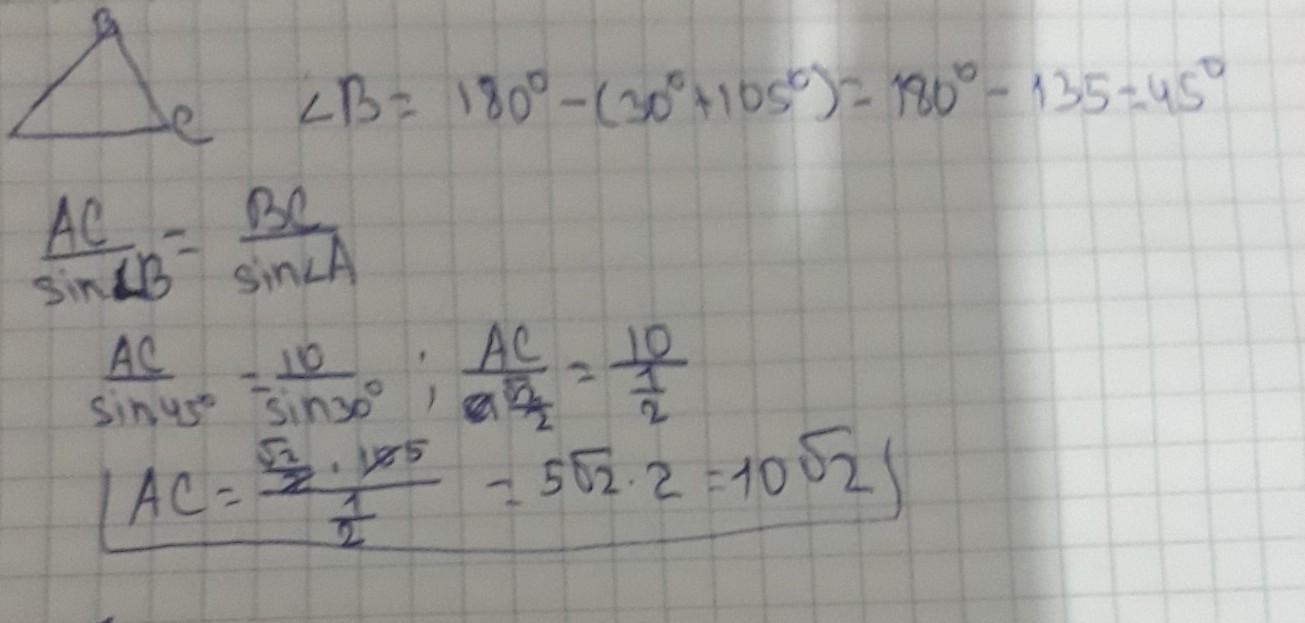 B
C
∠B = 180° - (30° + 105°) = 180° - 135 = 45°
AC/sin∠B = BC/sin∠A
AC/sin45° = 10/sin30° ; AC/(√2/2) = 10/(1/2)
AC = (√2/2 · 10 5)/(1/2) = 5√2 · 2 = 10√2